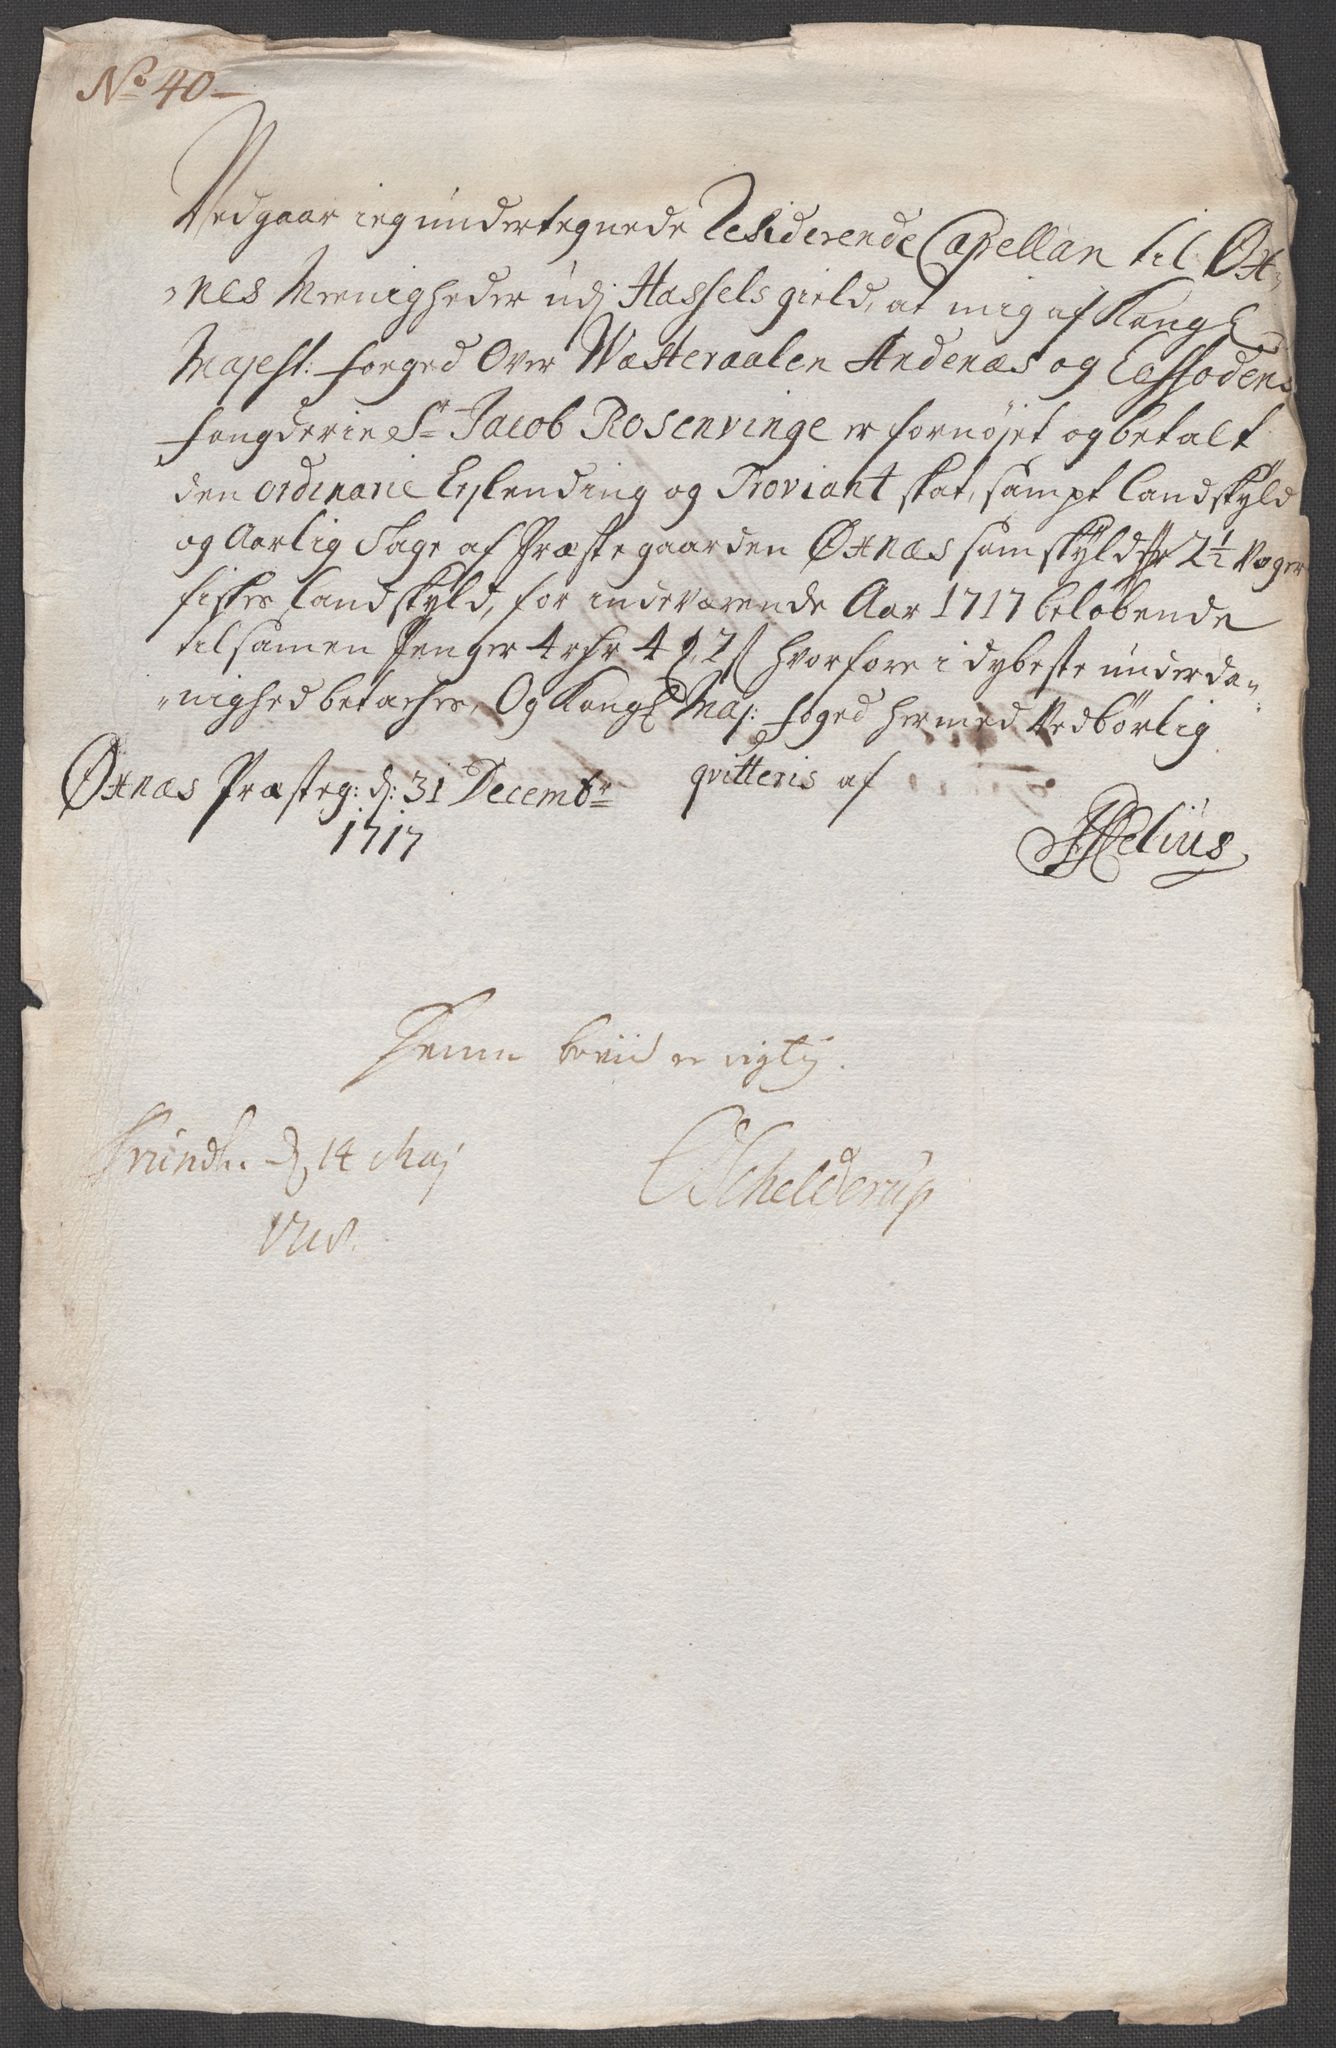 No 40
Vedgaar ieg underteegnede Residerende Capellan til Øx-
nes Meenigheder udj Hassels gield, at mig af Kongl
Majest: foeged Over Wæsteraalen Andenæs og Loffodens
fougderie Sr Jacob Rosenvinge er fornøjet og betalt
den ordinarie Leylending og Proviant skat, sampt landskyld
og Aarlig Tage af Præstegaarden Øxnæs som skylder 2½ Voger
fiskes landskyld, for indeværende Aar 1717 beløbende
tilsamen Penger 4 rdr 4 ß hvorfore i dybeste underda-
nighed betackes, Og Kongl Maj: foged hermed Vedbørlig
qvitteris af
Øxnæs Præsteg: d: 31 Decembr
1717
Helius
Denne beviis er rigtig.
Trundh. d 14 Maj
1718.
Schelderup